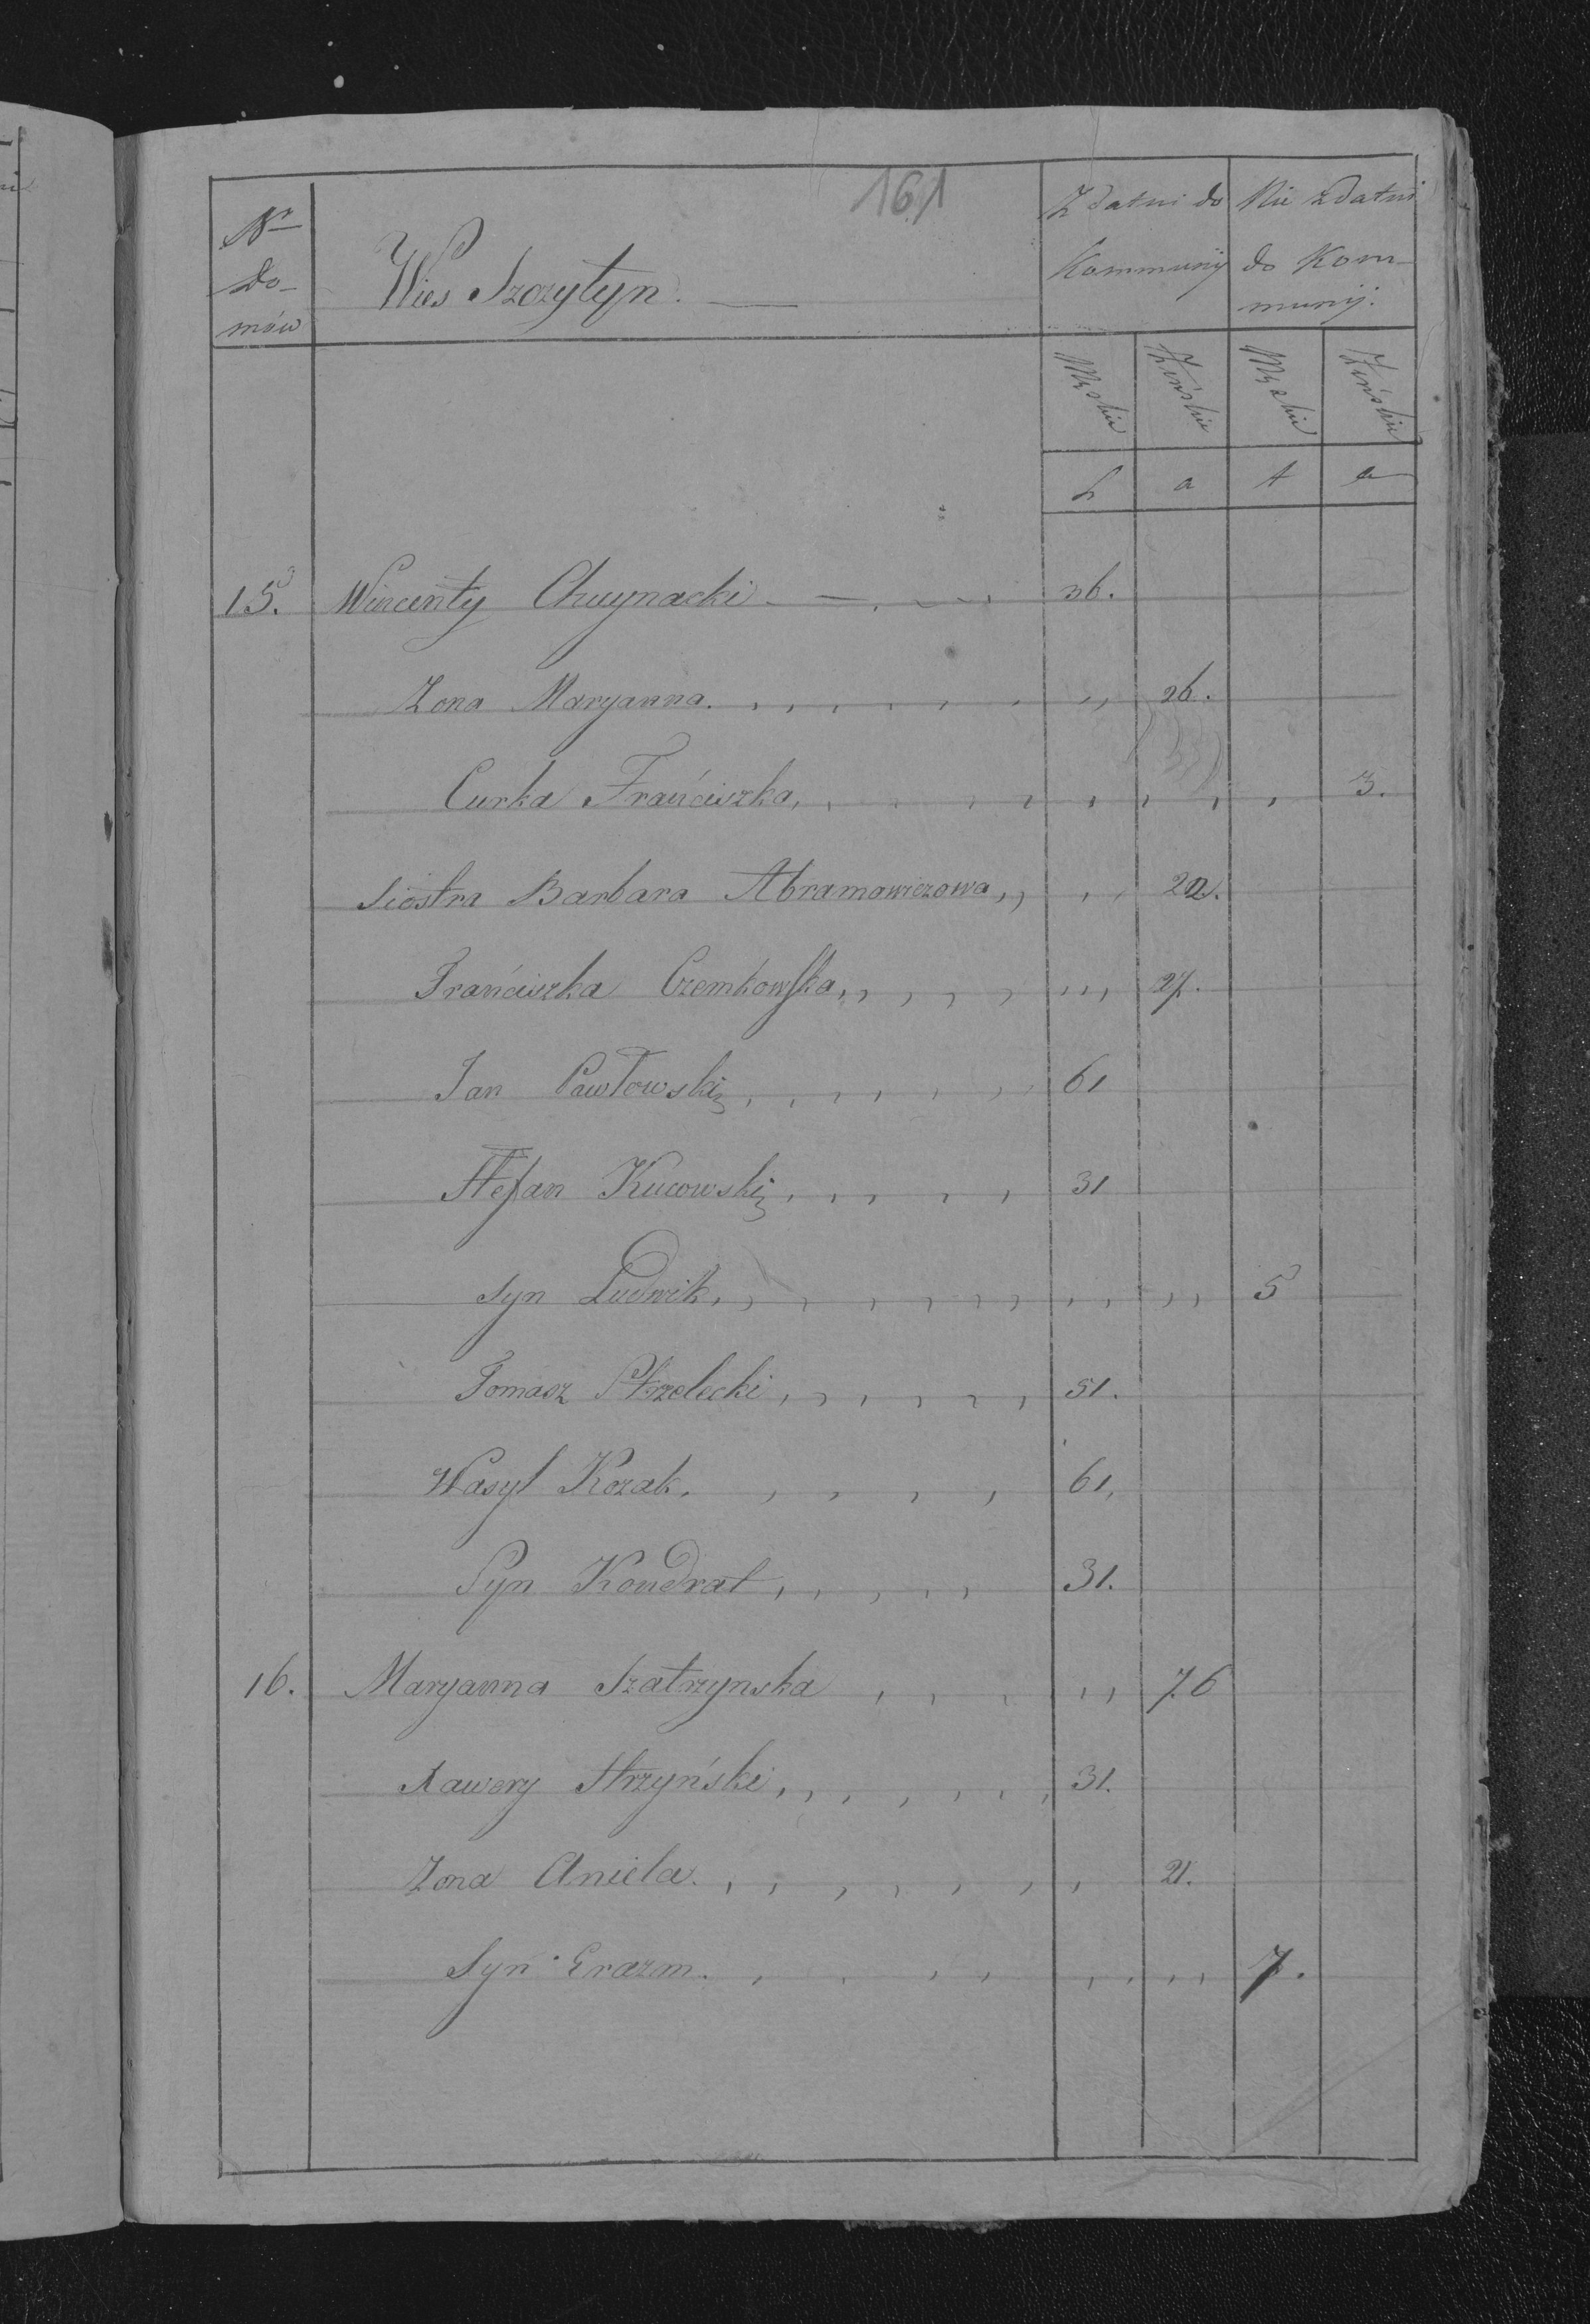 161
Nr
Do-
mów
Wies Szczytyn.
Zdatni do
Kommunij
Nie zdatni
do Kom-
munij.
Męskie
Zeńskie
Męskie
Zeńskie
L a t a
15. Wincenty Chuynacki 36.
Zona Maryanna. 26.
Curka Franciszka, 3.
Siostra Barbara Abramowiczowa 22.
Franciszka Czemkowska 27.
Jan Pawłowski 61
Stefan Kucowski 31
syn Ludwik 5
Tomasz Strzelecki 51.
Wasyl Kozak. 61.
Syn Kondrat 31.
16. Maryanna Szatrzynska 76
Xawery Strzyński 31.
Zona Aniela. 21.
Syn Erazm. 7.